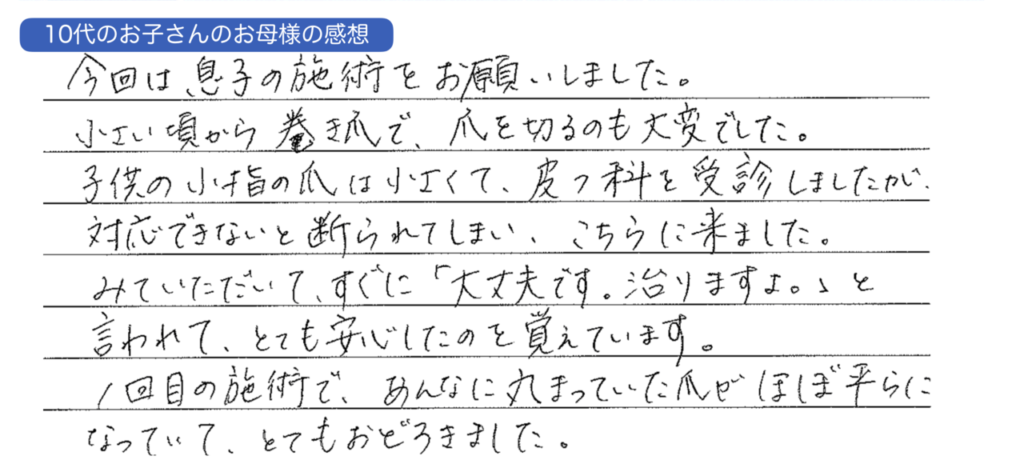 10代のお子さんのお母様の感想
今回は、息子の施術をお願いしました。
小さい頃から巻き爪で、爪を切るのも大変でした。
子供の小指の爪は小さくて、皮フ科を受診しましたが、
対応できないと断られてしまい、こちらに来ました。
みていただいて、すぐに「大丈夫です。治りますよ。」と
言われて、とても安心したのを覚えています。
1回目の施術で、あんなに丸まっていた爪がほぼ平らに
なっていて、とてもおどろきました。